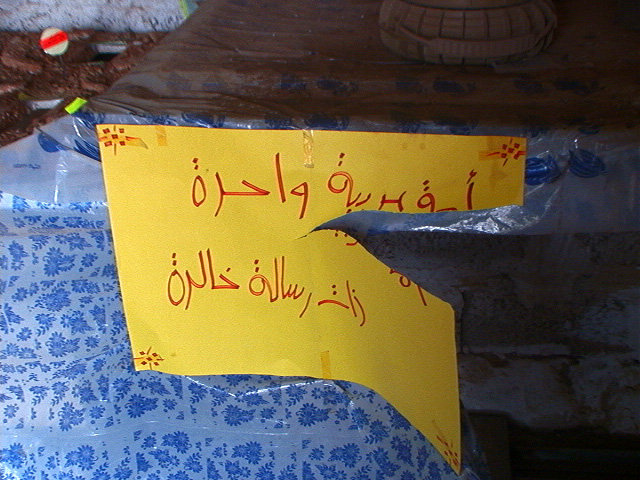 أمة عربية واحدة
ذات رسالة خالدة